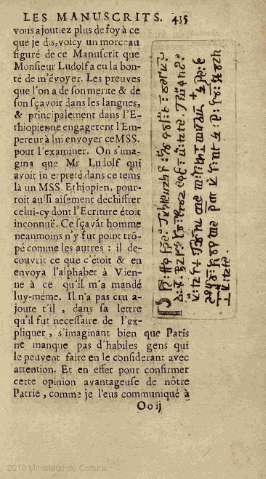 LES MANUSCRITS. 435
vous ajoutiez plus de foy à ce
que je dis, voicy un morceau
figuré de ce Manuscrit que
Monsieur Ludolf a eu la bon-
té de m'évoyer. Les preuves
que l'on a de son merite & de
son sçavoir dans les langues,
& principalement dans l'E-
thiopienne engagerent l'Em-
pereur à luy envoyer ce MSS.
pour l'examiner. On s'ima-
gina que Mr Ludolf qui
avoit interpreté dans ce tems
là un MSS. Ethiopien, pour-
roit aussi aisement dechiffrer
celuy-cy dont l'Ecriture étoit
inconnuë. Ce sçavāt homme
neanmoins n'y fut point trō-
pé comme les autres : il dé-
couvrit ce que c'étoit & en
envoya l'alphabet à Vien-
ne à ce qu'il m'a mandé
luy-même. Il n'a pas cru a-
joute t'il, dans sa lettre
qu'il fut necessaire de l'ex-
pliquer, s'imaginant bien que Paris
ne manque pas d'habiles gens qui
le peuvent faire en le considerant avec
attention. Et en effet pour confirmer
cette opinion avantageuse de nôtre
Patrie, comme je l'eus communiqué à
Oo ij